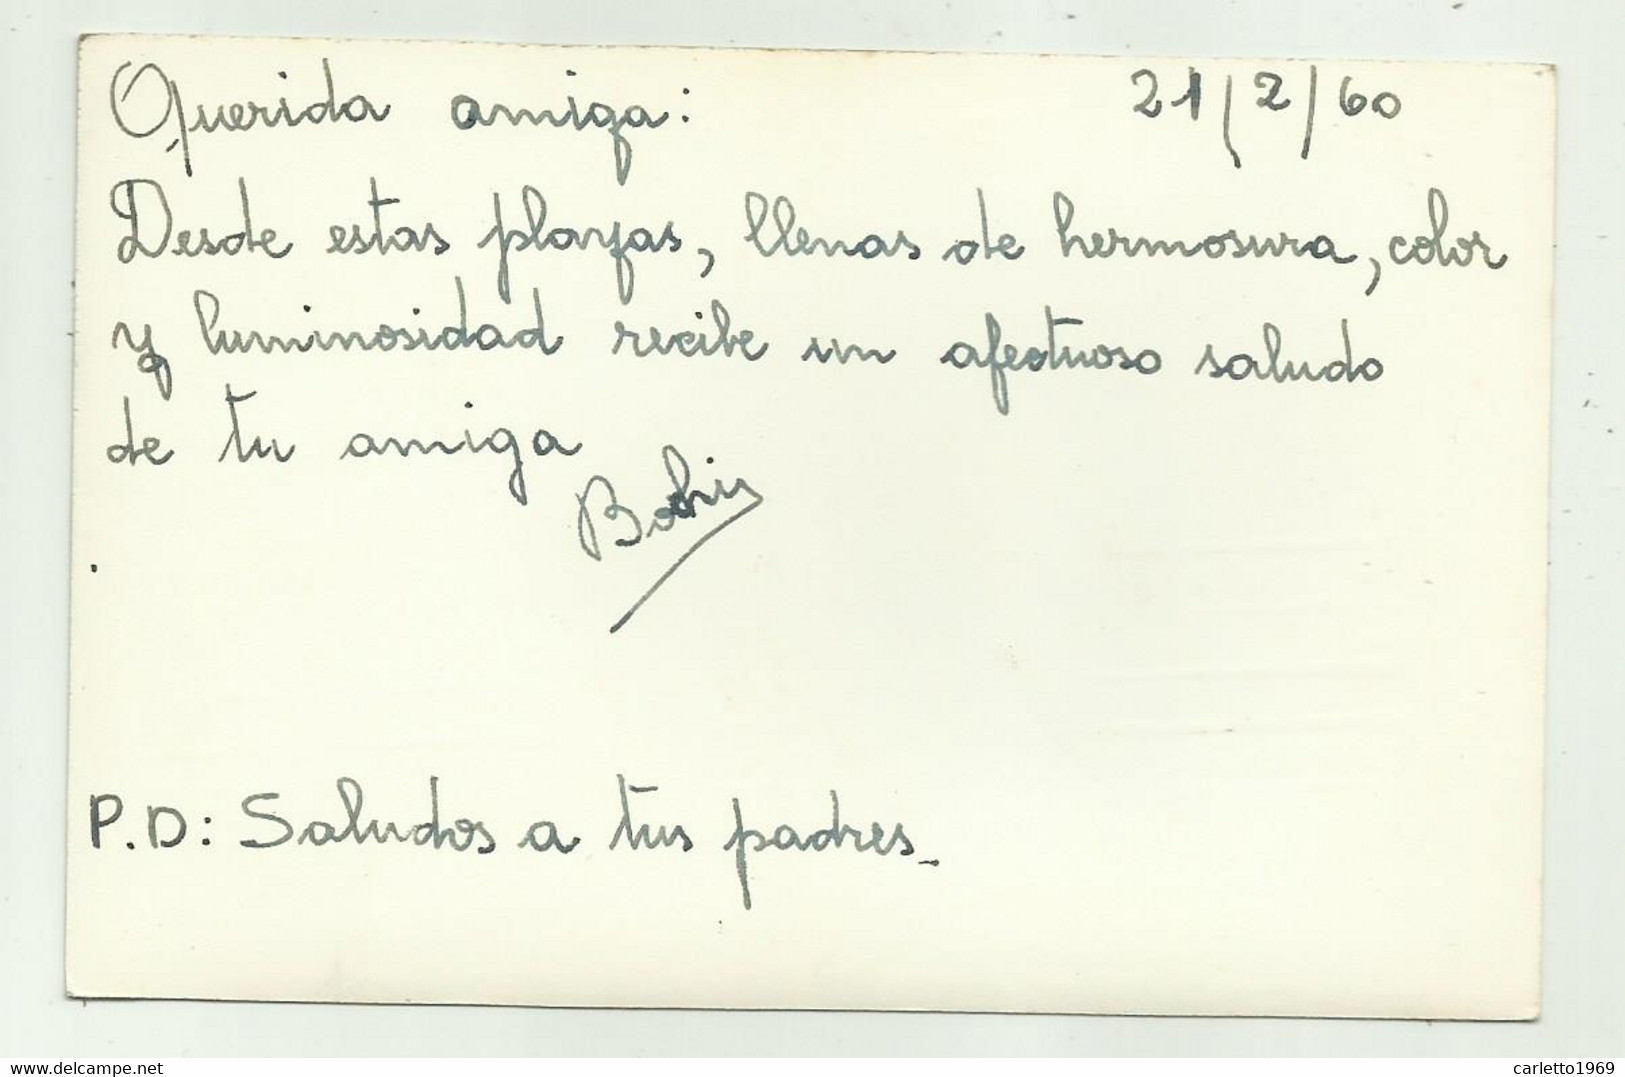 Querida amiga: 21/2/60
Desde estas playas, llenas de hermosura, color
y luminosidad recibe un afectuoso saludo
de tu amiga
P.D: Saludos a tus padres.
delcampe.net
carletto1969